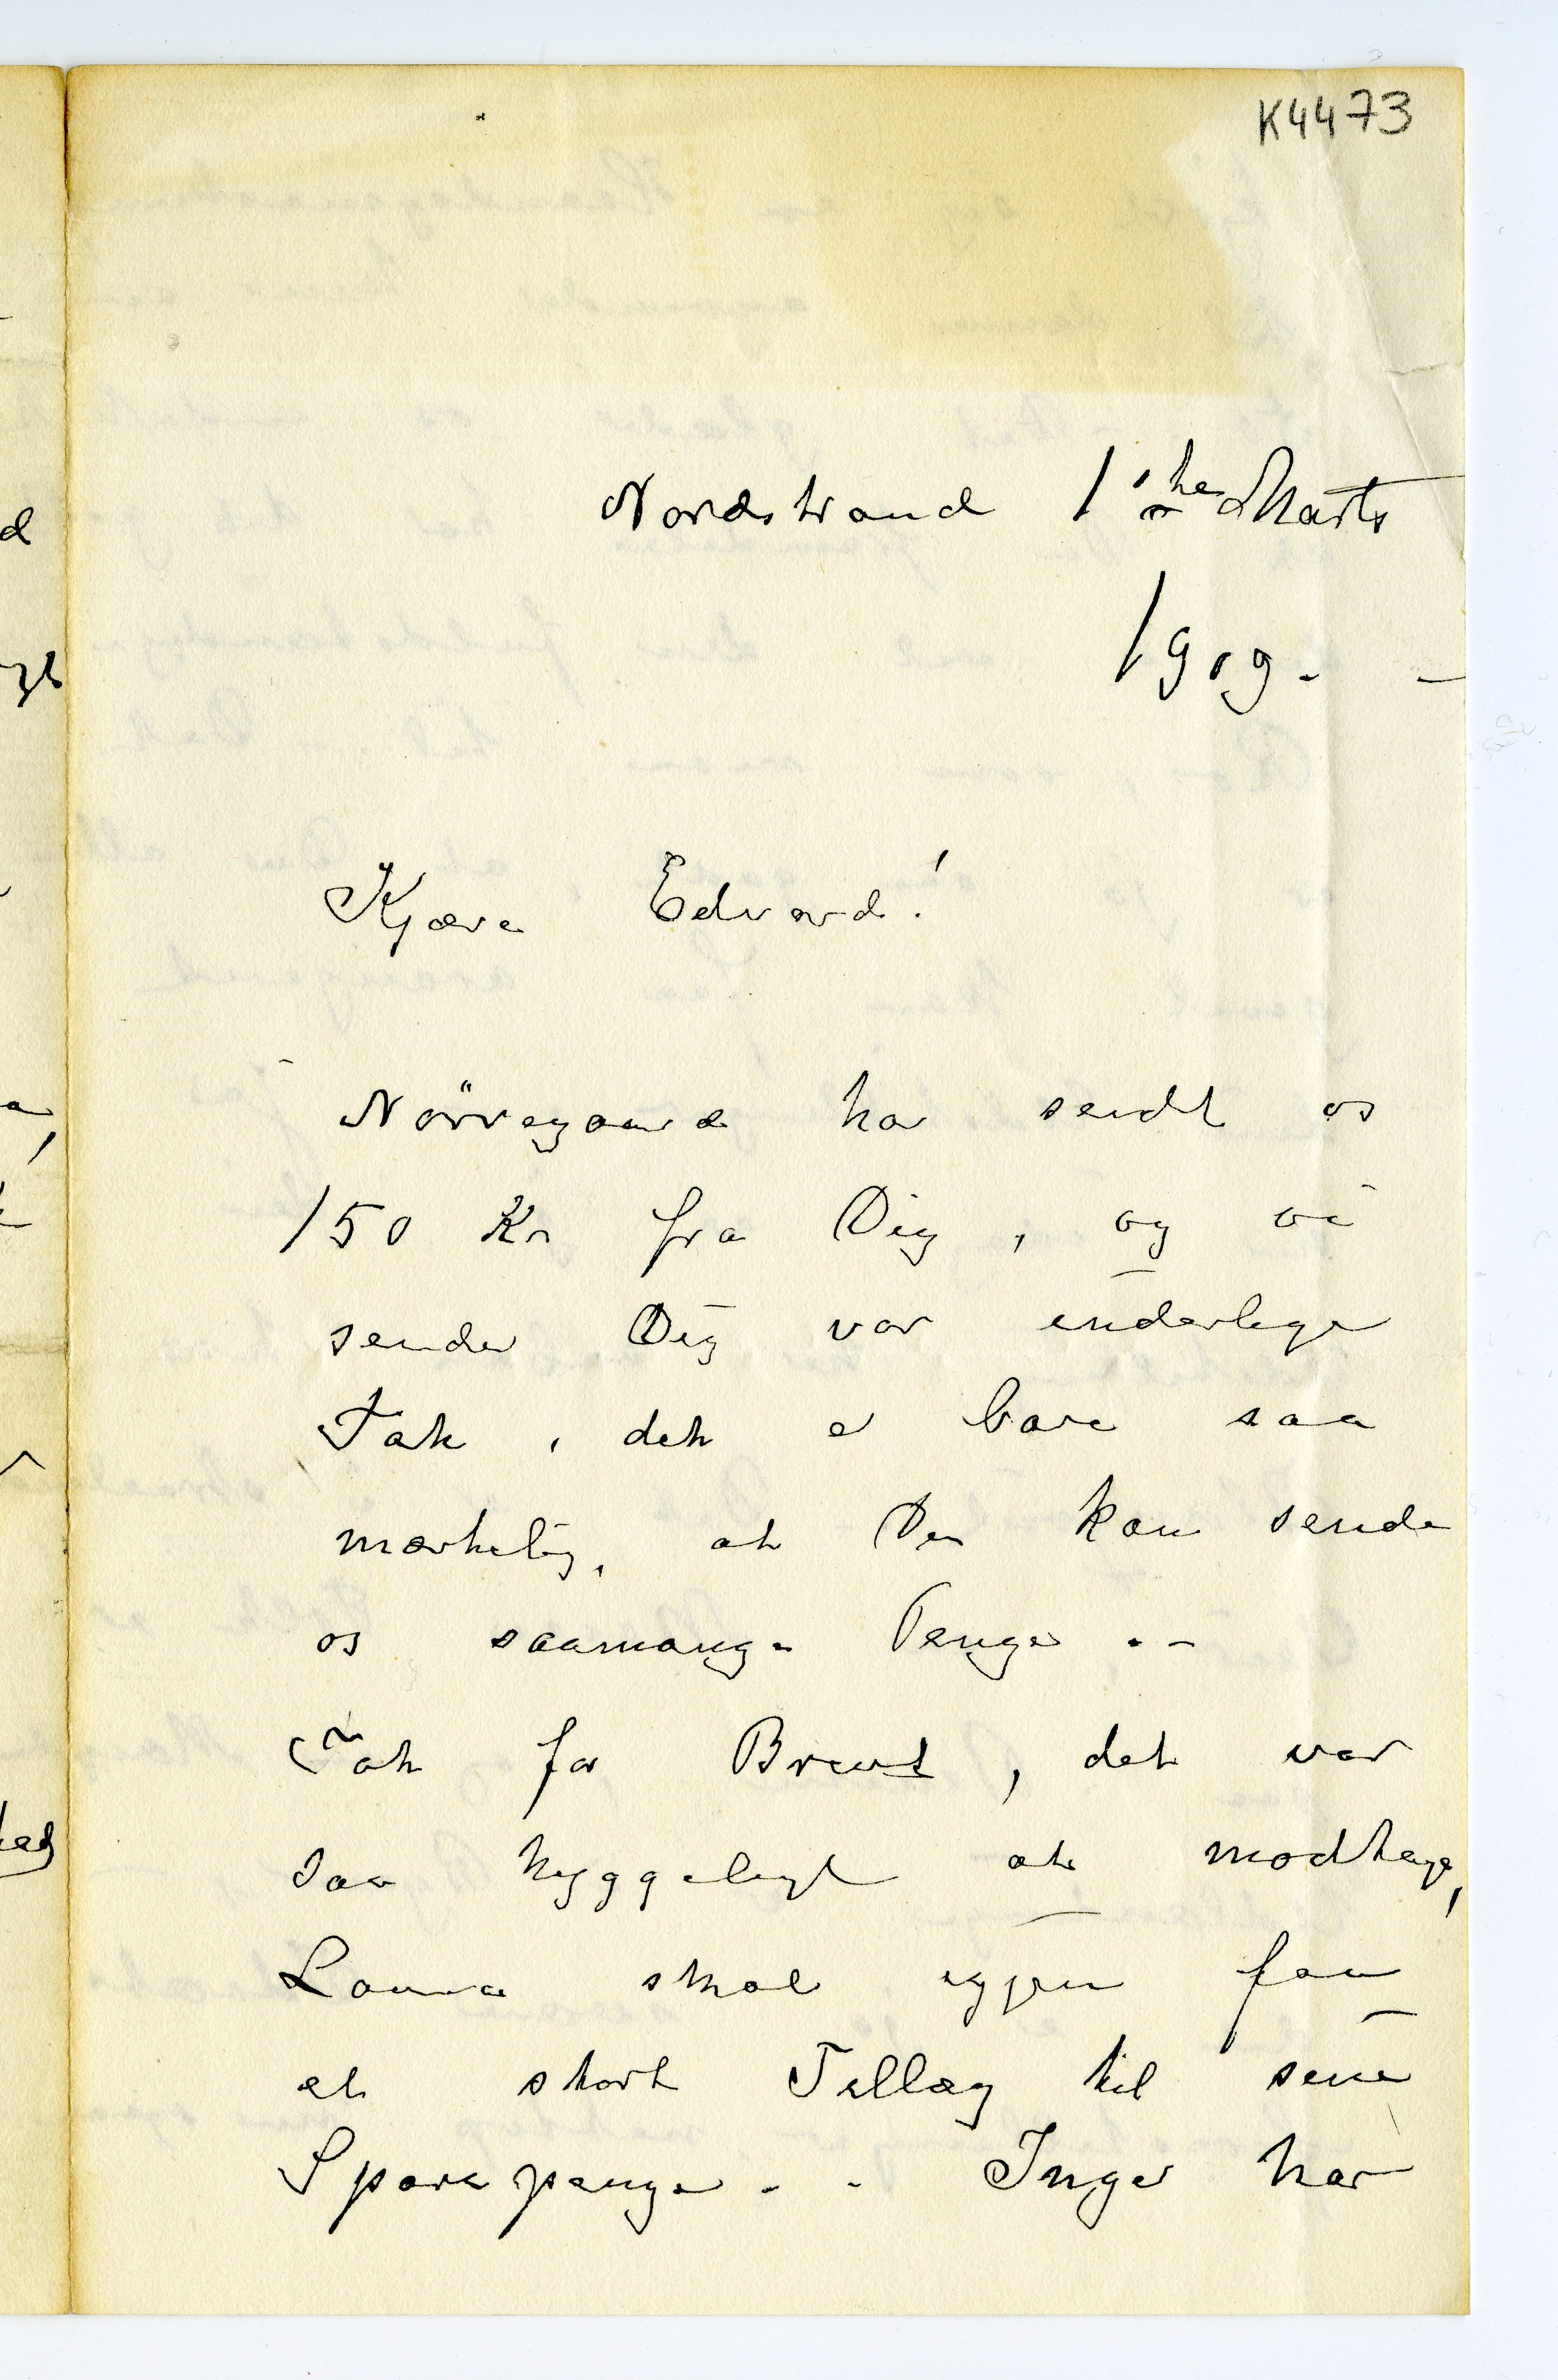 K4473
Nordstrand 1ste Marts
1909. -
Kjære Edvard!
Nörregaard har sendt os
150 Kr fra Dig, og vi
sender Dig vor inderlige
Tak, det er bare saa
mærkelig, at Du kan sende
os saamange Penge . -
Tak for Brevet, det var
saa hyggeligt at modtage,
Laura skal igjen faa
et stort Tillæg til sine
Sparepenge. - Inger har